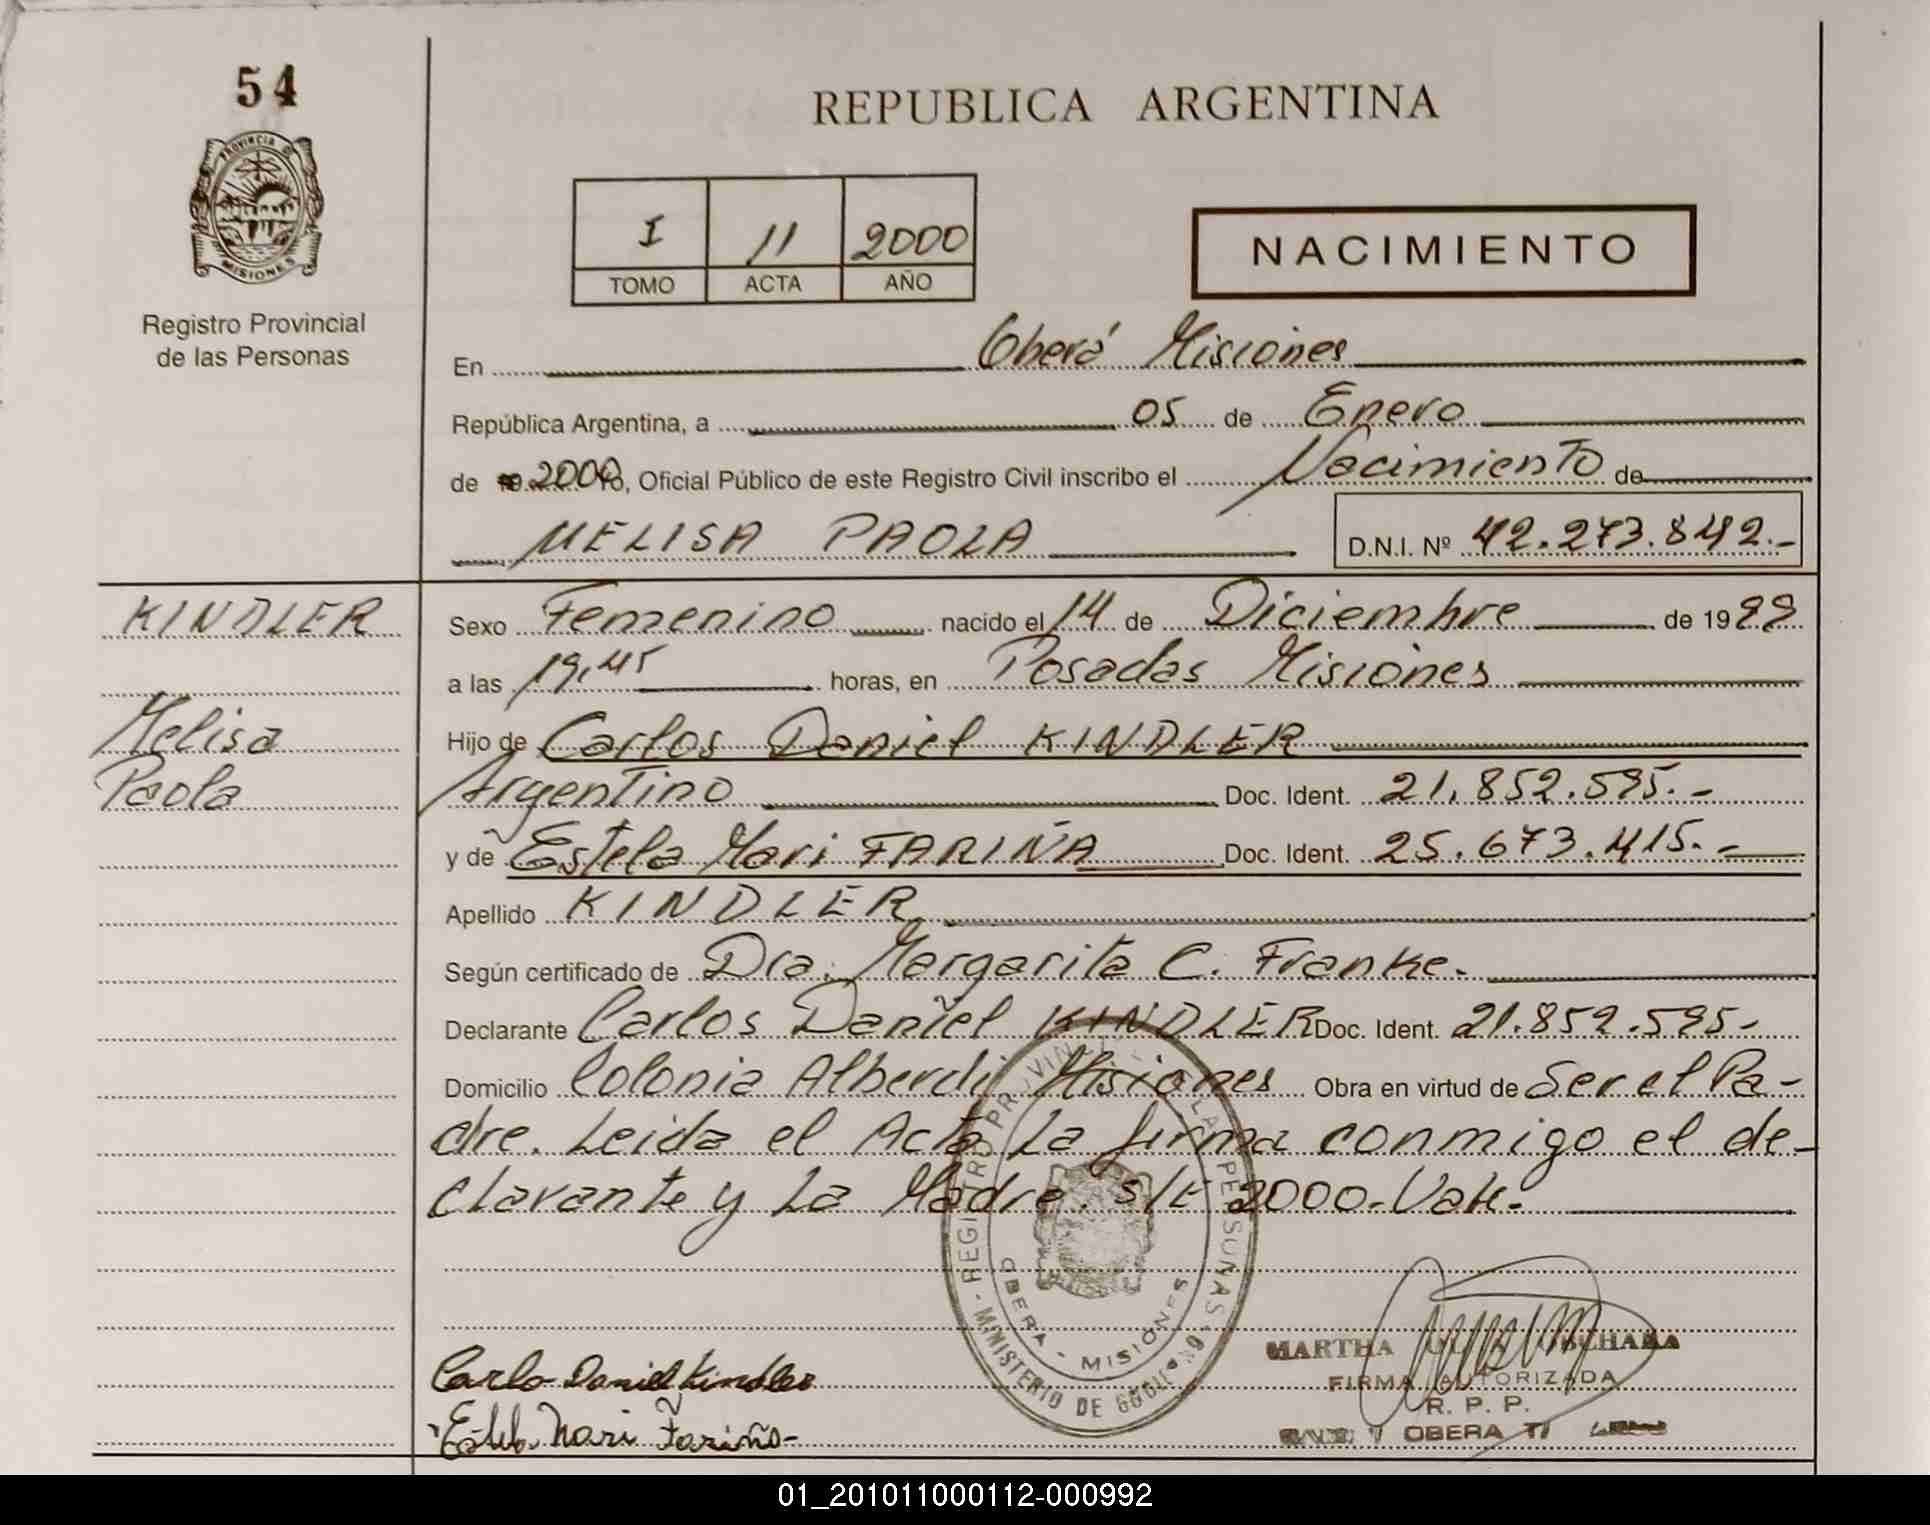 54
PROVINCIA DE
MISIONES
Registro Provincial
de las Personas
REPUBLICA ARGENTINA
I 11 2000
TOMO ACTA AÑO
NACIMIENTO
En Oberá Misiones
República Argentina, a 05 de Enero
de 2000, Oficial Público de este Registro Civil inscribo el Nacimiento de
MELISA PAOLA D.N.I. Nº 42.273.842.-
KINDLER
Melisa
Paola
Sexo Femenino nacido el 14 de Diciembre de 1999
a las 19,45 horas, en Posadas Misiones
Hijo de Carlos Daniel KINDLER
Argentino Doc. Ident. 21.852.595.-
y de Estela Mari FARIÑA Doc. Ident. 25.673.415.-
Apellido KINDLER
Según certificado de Dra. Margarita C. Franke.
Declarante Carlos Daniel KINDLER Doc. Ident. 21.852.595-
Domicilio Colonia Alberdi Misiones Obra en virtud de Ser el Pa-
dre. Leida el Acta La firma conmigo el de-
clarante y La Madre. S/E 2000-Vale-
REGISTRO PROVINCIAL DE LAS PERSONAS
MINISTERIO DE GOBIERNO
OBERA - MISIONES
Carlo Daniel Kindler
Estela Mari Fariña-
MARTHA
FIRMA AUTORIZADA
R. P. P.
OBERA
01_201011000112-000992